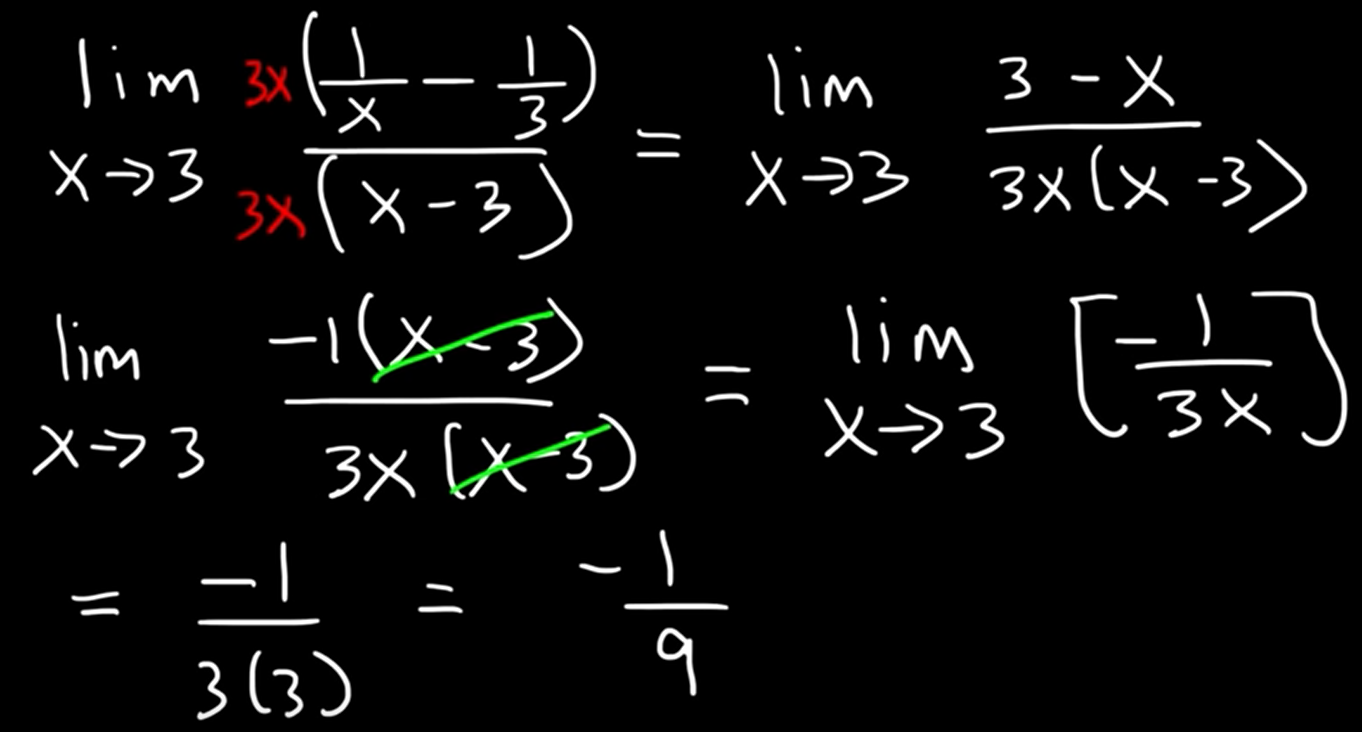 lim x→3 3x(1/x - 1/3) / 3x(x-3) = lim x→3 3-x / 3x(x-3)
lim x→3 -1(x-3) / 3x(x-3) = lim x→3 [-1/3x]
= -1 / 3(3) = -1/9